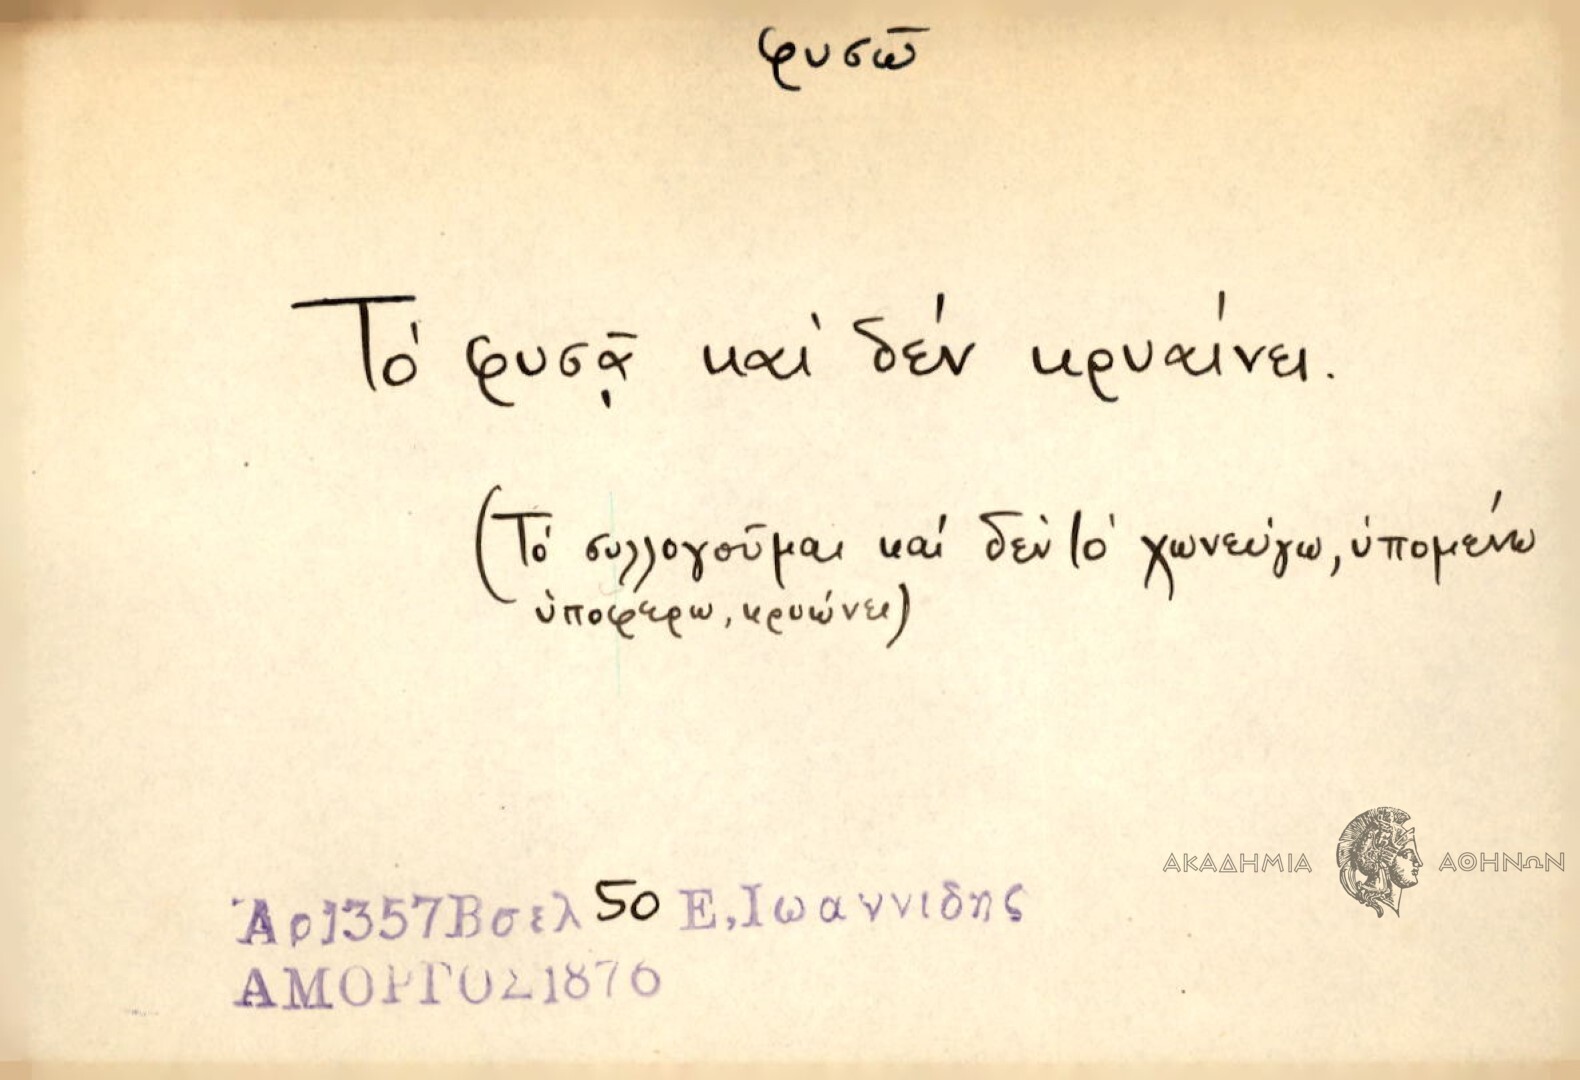 φυσῶ
Τό φυσᾷ καί δέν κρυαίνει.
(Τό συλλογοῦμαι καί δέν τό χωνεύγω, ὑπομένω
ὑποφέρω, κρυώνει)
Ἀρ1357Βσελ 50 Ε,Ιωαννιδης
ΑΜΟΡΓΟΣ1876
ΑΚΑΔΗΜΙΑ ΑΘΗΝΩΝ